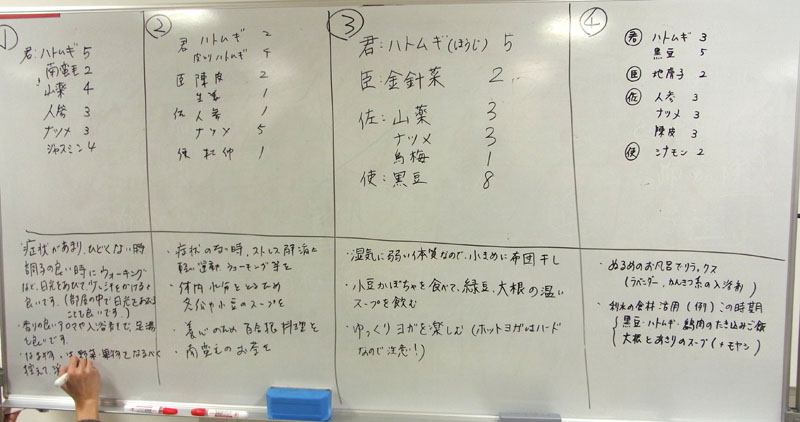 ①
君:ハトムギ 5
南蛮毛 2
山薬 4
人参 3
ナツメ 3
ジャスミン 4
症状があまり、ひどくない時
調子の良い時にウォーキング
など、日光をあびて、少し汗をかけると
良いです。(部屋の中で日光をあびる
ことも良いです。)
香りの良いアロマや入浴剤で、足湯
も良いです。
・野菜・果物をなるべく
控えて、
②
君 ハトムギ 2
炒りハトムギ 4
臣 陳皮 2
生姜 1
佐 人参 1
ナツメ 5
使 杜仲 1
・症状のない時、ストレス解消に
軽い運動 ウォーキング等を
・体内水分をとるため
冬瓜や小豆のスープを
・養心のため 百合根料理を
・南蛮毛のお茶を
③
君:ハトムギ(ほうじ) 5
臣:金針菜 2
佐:山薬 3
ナツメ 3
烏梅 1
使:黒豆 8
・湿気に弱い体質なので、小まめに布団干し
・小豆かぼちゃを食べて、緑豆、大根の温い
スープを飲む
・ゆっくりヨガを楽しむ(ホットヨガはハード
なので注意!)
④
君 ハトムギ 3
黒豆 5
臣 地膚子 2
佐 人参 3
ナツメ 3
陳皮 3
使 シナモン 2
・ぬるめのお風呂でリラックス
(ラベンダー、かんきつ系の入浴剤)
・利水の食材活用(例)この時期
黒豆・ハトムギ・鶏肉のたき込みご飯
大根とあさりのスープ(+モヤシ)